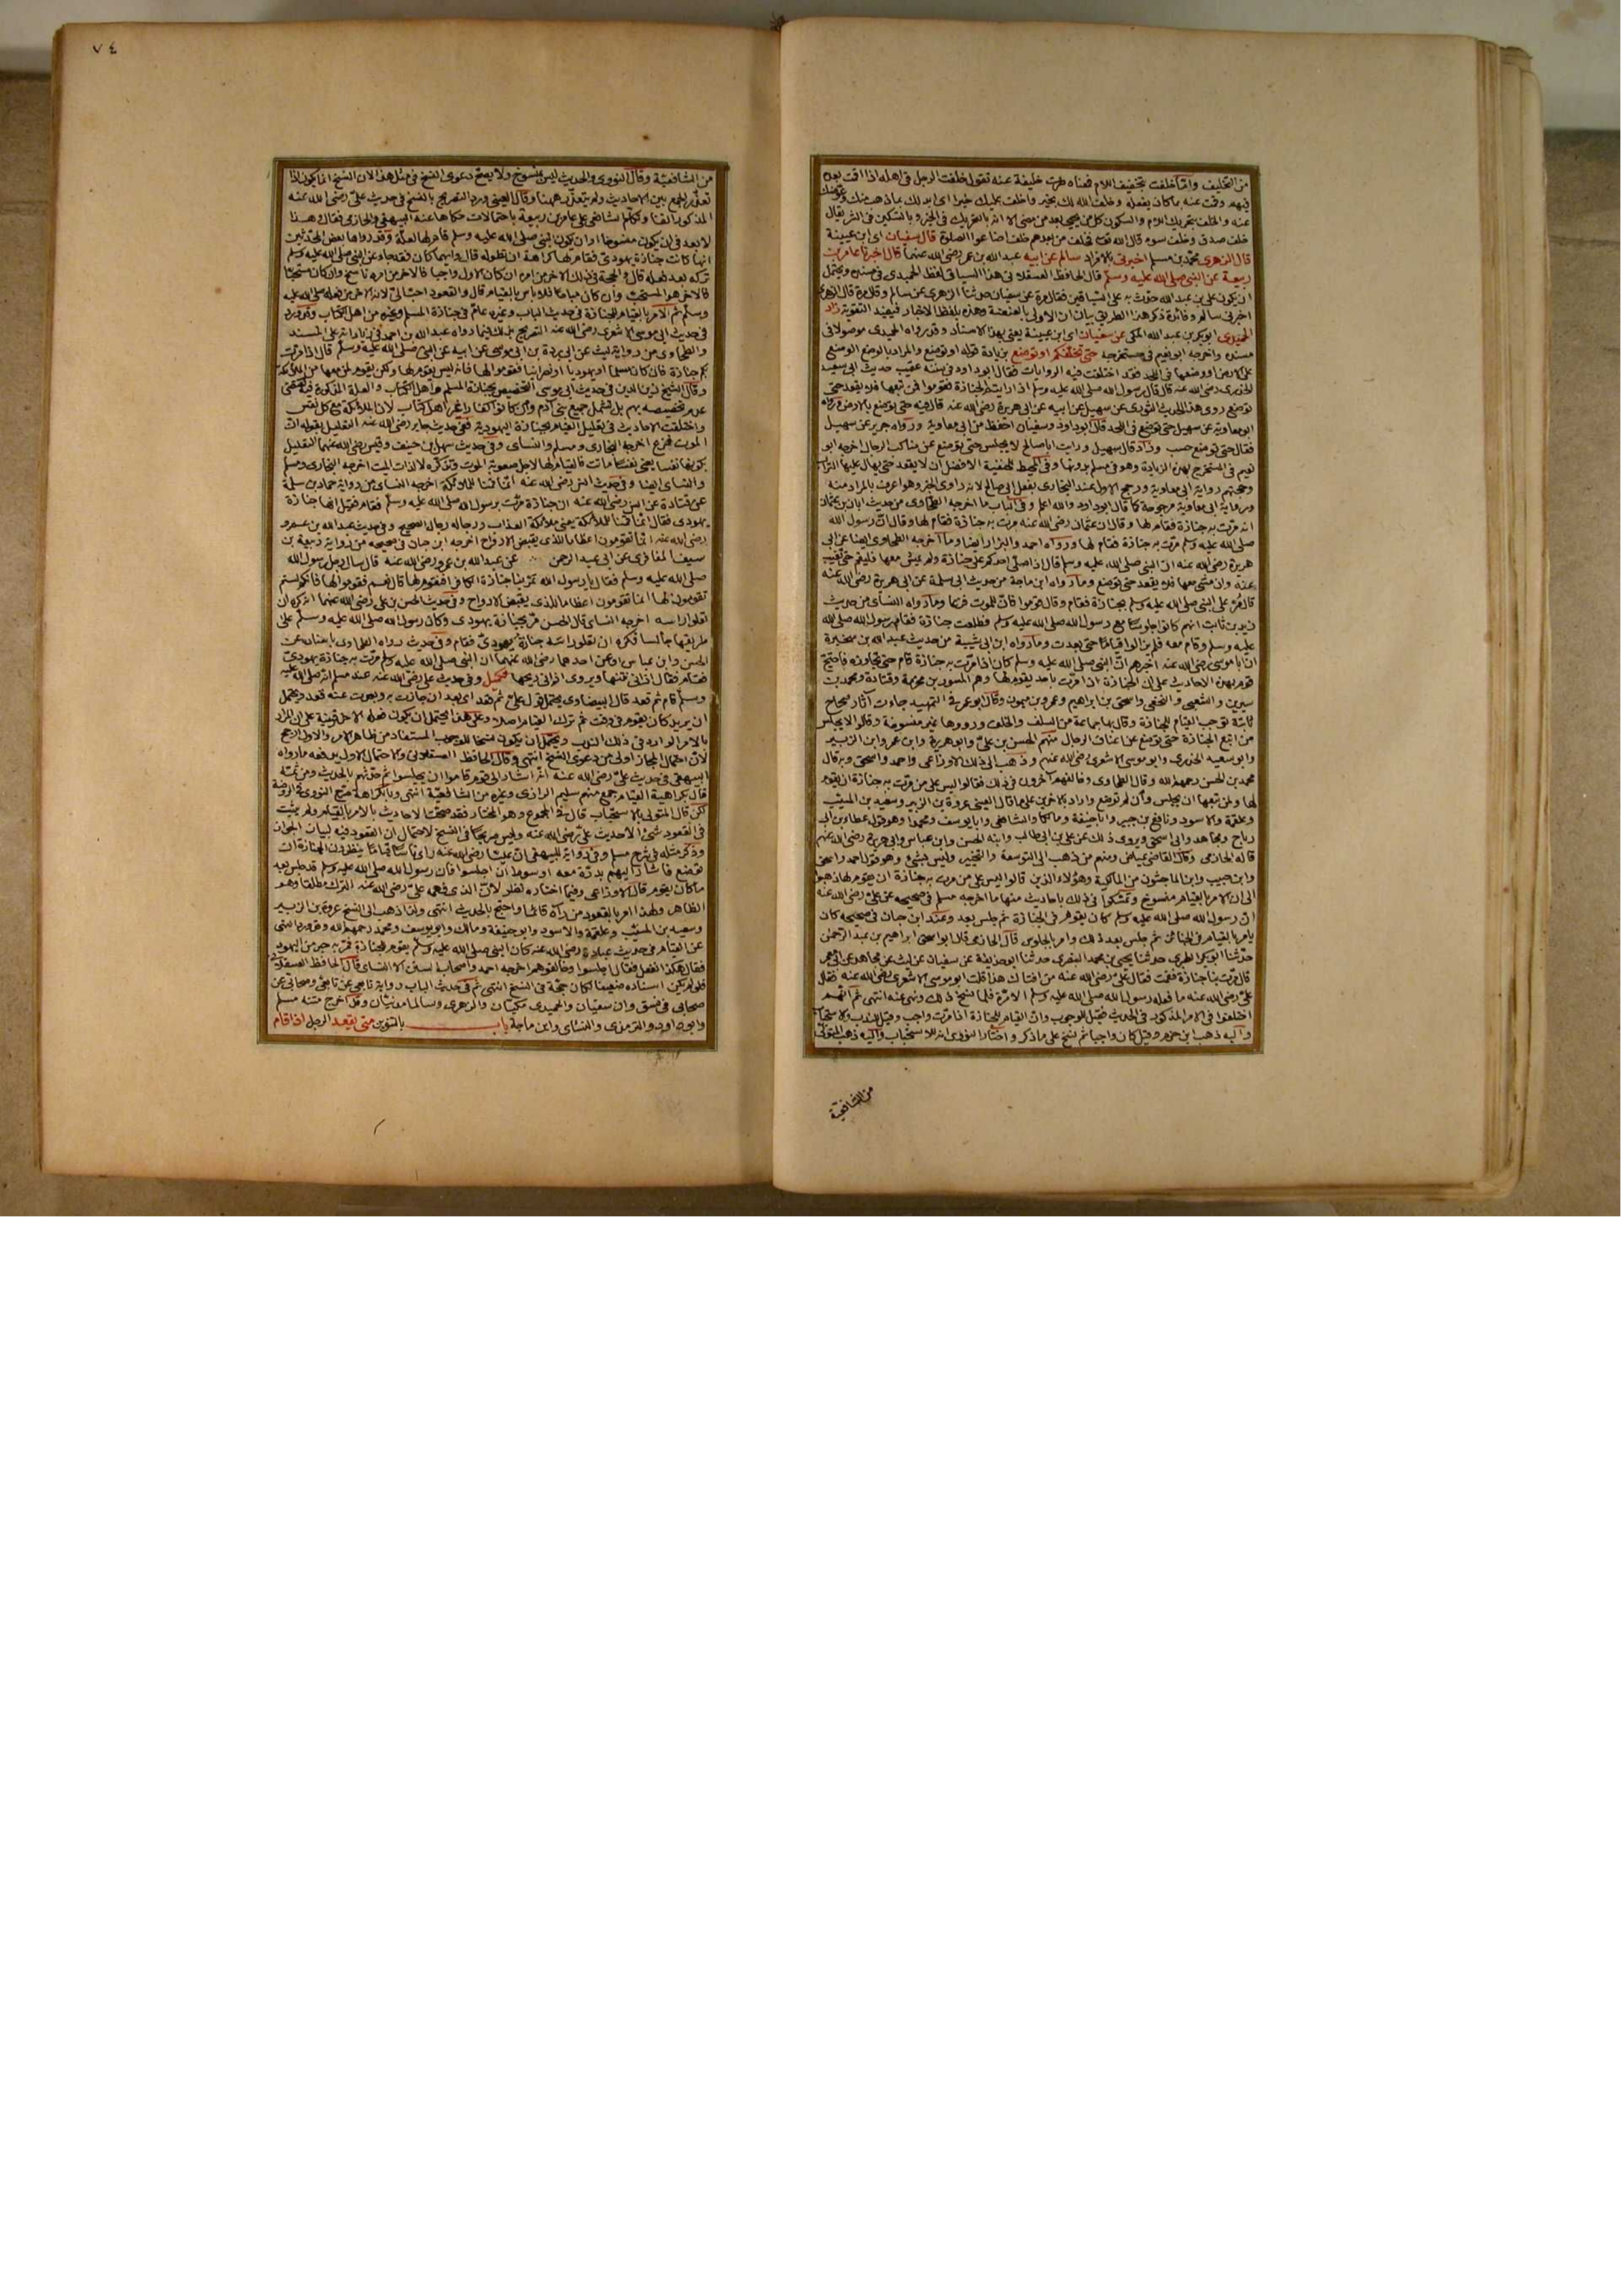 من التخليف واما خلفت بتخفيف اللام فمعناه صرت خليفة عنه تقول خلفت الرجل في اهله اذا اقت بعده
فيهم وقت عنه بما كان يفعله وخلف الله لك بخير واخلف عليك خيرا اى ابدلك بما ذهب منك وعوضك
عنه والخلف بتحريك اللام والسكون كل من يجئ بعد من مضى الا انه بالتحريك في الخير وبالتسكين في الشر يقال
خلف صدق وخلف سوء قال الله تعالى فخلف من بعدهم خلف اضاعوا الصلوة قال سفيان اى ابن عيينة
قال الزهرى محمد بن مسلم اخبرنى بالافراد سالم عن ابيه عبد الله بن عمر رضى الله عنهما قال اخبرنا عامر بن
ربيعة عن النبى صلى الله عليه وسلم قال الحافظ العسقلانى هذا السياق لفظ الحميدى في مسنده ويحتمل
ان يكون على بن عبد الله حدث به على السياقين فقال مرة عن سفيان حدثنا الزهرى عن سالم وقال مرة قال الزهرى
اخبرنى سالم وفائدة ذكر هذا الطريق بيان ان الاولى بالعنعنة وهذه بلفظ الاخبار فيفيد التقوية زاد
الحميدى ابو بكر بن عبد الله المكى عن سفيان اى ابن عيينة يعنى بهذا الاسناد وقد رواه الحميدى موصولا في
مسنده واخرجه ابو نعيم في مستخرجه حتى تخلفكم او توضع بزيادة قوله او توضع والمراد بالوضع الوضع
على الارض او وضعها في اللحد فقد اختلفت فيه الروايات فقال ابو داود في سننه عقيب حديث ابى سعيد
الخدرى رضى الله عنه قال قال رسول الله صلى الله عليه وسلم اذا رايتم الجنازة فقوموا فمن تبعها فلا يقعد حتى
توضع روى هذا الحديث الثورى عن سهيل عن ابيه عن ابى هريرة رضى الله عنه قال فيه حتى توضع بالارض ورواه
ابو معاوية عن سهيل حتى توضع في اللحد قال ابو داود وسفيان احفظ من ابى معاوية ورواه جرير عن سهيل
فقال حتى توضع حسب وزاد قال سهيل ورايت ابا صالح لا يجلس حتى توضع عن مناكب الرجال اخرجه ابو
نعيم في المستخرج بهذه الزيادة وهو في مسلم بدونها وفي المحيط للحنفية الافضل ان لا يقعد حتى يهال عليها التراب
وحجتهم رواية ابى معاوية ورجح الاول عند البخارى بفعل ابى صالح لانه راوى الخبر وهو اعرف بالمراد منه
ورواية ابى معاوية مرجوحة كما قال ابو داود والله اعلم وفي الباب ما اخرجه الطحاوى من حديث ابان بن عثمان
انه مرت به جنازة فقام لها وقال ان عثمان رضى الله عنه مرت به جنازة فقام لها وقال ان رسول الله
صلى الله عليه وسلم مرت به جنازة فقام لها ورواه احمد والبزار ايضا وما اخرجه الطحاوى ايضا عن ابى
هريرة رضى الله عنه ان النبى صلى الله عليه وسلم قال اذا صلى احدكم على جنازة ولم يمش معها فليقم حتى تغيب
عنه وان مشى معها فلا يقعد حتى توضع وما رواه ابن ماجة من حديث ابى سلمة عن ابى هريرة رضى الله عنه
قال مر على النبى صلى الله عليه وسلم بجنازة فقام وقال قوموا فان للموت فزعا وما رواه النسائى من حديث
زيد بن ثابت انهم كانوا جلوسا مع رسول الله صلى الله عليه وسلم فطلعت جنازة فقام رسول الله صلى الله
عليه وسلم وقام معه فلم يزالوا قياما حتى بعدت وما رواه ابن ابى شيبة من حديث عبد الله بن سخبرة
ان ابا موسى رضى الله عنه اخبرهم ان النبى صلى الله عليه وسلم كان اذا مرت به جنازة قام حتى تجاوزه فاحتج
قوم بهذه الاحاديث على ان الجنازة اذا مرت باحد يقوم لها وهم المسور بن مخرمة وقتادة ومحمد بن
سيرين والشعبى والنخعى واسحق بن ابراهيم وعمرو بن ميمون وقال ابو عمر في التمهيد جاءت آثار صحاح
ثابتة توجب القيام للجنازة وقال بها جماعة من السلف والخلف ورووها غير منسوخة وقالوا لا يجلس
من اتبع الجنازة حتى توضع عن اعناق الرجال منهم الحسن بن على وابو هريرة وابن عمر وابن الزبير
وابو سعيد الخدرى وابو موسى الاشعرى رضى الله عنهم وذهب الى ذلك الاوزاعى واحمد واسحق وبه قال
محمد بن الحسن رحمهم الله وقال الطحاوى وخالفهم آخرون في ذلك فقالوا ليس على من مرت به جنازة ان يقوم
لها ولمن تبعها ان يجلس وان لم توضع واراد بالاخرين على ما قال العينى عروة بن الزبير وسعيد بن المسيب
وعلقمة والاسود ونافع بن جبير وابا حنيفة ومالكا والشافعى وابا يوسف ومحمدا وهو قول عطاء بن ابى
رباح ومجاهد وابى اسحق ويروى ذلك عن على بن ابى طالب وابنه الحسن وابن عباس وابى هريرة رضى الله عنهم
قاله الحازمى وقال القاضى عياض ومنهم من ذهب الى التوسعة والتخيير وليس بشئ وهو قول احمد واسحق
وابن حبيب وابن الماجشون من المالكية وهؤلاء الذين قالوا ليس على من مرت به جنازة ان يقوم لها ذهبوا
الى ان الامر بالقيام منسوخ وتمسكوا في ذلك باحاديث منها ما اخرجه مسلم في صحيحه عن على رضى الله عنه
ان رسول الله صلى الله عليه وسلم كان يقوم في الجنازة ثم جلس بعد وعند ابن حبان في صحيحه كان
يامر بالقيام في الجنائز ثم جلس بعد ذلك وامر بالجلوس قال الحازمى قال ابو اسحق ابراهيم بن عبد الرحمن
حدثنا ابو بكر الطبرى حدثنا يحيى بن محمد البصرى حدثنا ابو حذيفة عن سفيان عن ليث عن مجاهد عن ابى معمر
قال مرت بنا جنازة فقمت فقال على رضى الله عنه من افتاك هذا قلت ابو موسى الاشعرى رضى الله عنه فقال
على رضى الله عنه ما فعله رسول الله صلى الله عليه وسلم الا مرة فلما نسخ ذلك ونهى عنه انتهى ثم انهم
اختلفوا في الامر المذكور في الحديث فقيل للوجوب وان القيام للجنازة اذا مرت واجب وقيل للندب والاستحباب
واليه ذهب ابن حزم وقيل كان واجبا ثم نسخ على ما ذكر واختار النووى انه للاستحباب واليه ذهب المتولى
من الشافعية
٧٤
من الشافعية وقال النووى والحديث ليس بمنسوخ ولا يصح دعوى النسخ في مثل هذا لان النسخ انما يكون اذا
تعذر الجمع بين الاحاديث ولم يتعذر ههنا وقال العينى ورد التصريح بالنسخ في حديث على رضى الله عنه
المذكور آنفا وتكلم الشافعى على عامر بن ربيعة باحتمالات حكاها عنه البيهقى والحازمى فقال وهذا
لا يعدو ان يكون منسوخا او ان يكون النبى صلى الله عليه وسلم قام لها لعلة وقد رواها بعض المحدثين
انها كانت جنازة يهودى فقام لها كراهة ان تطوله قال وايهما كان فقد جاء عن النبى صلى الله عليه وسلم
تركه بعد فعله قال والحجة في ذلك الاخر من امره ان كان الاول واجبا فالاخر من امره ناسخ وان كان مستحبا
فالاخر هو المستحب وان كان مباحا فلا باس بالقيام قال والقعود احب الى لانه الاخر من فعله صلى الله عليه
وسلم ثم الامر بالقيام للجنازة في حديث الباب وغيره عام في جنازة المسلم وغيره من اهل الكتاب وقد ورد
في حديث ابى موسى الاشعرى رضى الله عنه التصريح بذلك فيما رواه عبد الله بن احمد في زياداته على المسند
والطحاوى من رواية ليث عن ابى بردة بن ابى موسى عن ابيه عن النبى صلى الله عليه وسلم قال اذا مرت
بكم جنازة فان كان مسلما او يهوديا او نصرانيا فقوموا لها فانه ليس يقوم لها ولكن يقوم لمن معها من الملائكة
وقال الشيخ زين الدين في حديث ابى موسى التخصيص بجنازة المسلم واهل الكتاب والعلة المذكورة فيه تقتضى
عدم تخصيصه بهم بل تشمل جميع بنى آدم وان كانوا كفارا غير اهل كتاب لان الملائكة مع كل نفس
واختلفت الاحاديث في تعليل القيام بجنازة اليهودية ففى حديث جابر رضى الله عنه التعليل بقوله ان
الموت فزع اخرجه البخارى ومسلم والنسائى وفي حديث سهل بن حنيف وقيس رضى الله عنهما التعليل
بكونها نفسا يعنى نفسا ماتت فالقيام لها لاجل صعوبة الموت وتذكره لا لذات الميت اخرجه البخارى ومسلم
والنسائى ايضا وفي حديث انس رضى الله عنه انما قمنا للملائكة اخرجه النسائى من رواية حماد بن سلمة
عن قتادة عن انس رضى الله عنه ان جنازة مرت برسول الله صلى الله عليه وسلم فقام فقيل انها جنازة
يهودى فقال انما قمنا للملائكة يعنى ملائكة العذاب ورجاله رجال الصحيح وفي حديث عبد الله بن عمرو
رضى الله عنه انما تقومون اعظاما للذى يقبض الارواح اخرجه ابن حبان في صحيحه من رواية ربيعة بن
سيف المعافرى عن ابى عبد الرحمن عن عبد الله بن عمرو رضى الله عنه قال سال رجل رسول الله
صلى الله عليه وسلم فقال يا رسول الله تمر بنا جنازة الكافر افنقوم لها قال نعم فقوموا لها فانكم لستم
تقومون لها انما تقومون اعظاما للذى يقبض الارواح وفي حديث الحسن بن على رضى الله عنهما انه كره ان
تعلو راسه اخرجه النسائى قال الحسن مر بجنازة يهودى وكان رسول الله صلى الله عليه وسلم على
طريقها جالسا فكره ان تعلو راسه جنازة يهودى فقام وفي حديث رواه الطحاوى باسناده عن
الحسن وابن عباس او عن احدهما رضى الله عنهما ان النبى صلى الله عليه وسلم مرت به جنازة يهودى
فقام فقال اذانى نتنها ويروى اذانى ريحها وفي حديث على رضى الله عنه عند مسلم انه صلى الله عليه
وسلم قام ثم قعد قال البيضاوى يحتمل قول على ثم قعد اى بعد ان جازت به وبعدت عنه قعد ويحتمل
ان يريد كان يقوم في وقت ثم ترك القيام اصلا وعلى هذا يحتمل ان يكون فعله الاخر قرينة على ان المراد
بالامر الوارد في ذلك الندب ويحتمل ان يكون نسخا للوجوب المستفاد من ظاهر الامر والاول ارجح
لان احتمال المجاز اولى من دعوى النسخ انتهى وقال الحافظ العسقلانى والاحتمال الاول يدفعه ما رواه
البيهقى في حديث على رضى الله عنه انه اشار الى قوم قاموا ان يجلسوا ثم حدثهم بالحديث ومن ثمة
قال بكراهية القيام جمع منهم سليم الرازى وغيره من الشافعية انتهى وبالكراهة صرح النووى في الروضة
لكن قال المتولى بالاستحباب قال في المجموع وهو المختار فقد صحت الاحاديث بالامر بالقيام ولم يثبت
في القعود شئ الا حديث على رضى الله عنه وليس صريحا في النسخ لاحتمال ان القعود فيه لبيان الجواز
وذكر مثله في شرح مسلم وفي رواية للبيهقى ان عليا رضى الله عنه راى ناسا قياما ينتظرون الجنازة ان
توضع فاشار اليهم بدرة معه او سوط ان اجلسوا فان رسول الله صلى الله عليه وسلم قد جلس بعد
ما كان يقوم قال الاوزاعى وفيما اختاره نظر لان الذى فهمه على رضى الله عنه الترك مطلقا وهو
الظاهر ولهذا امر بالقعود من رآه قائما واحتج بالحديث انتهى ولذا ذهب الى النسخ عروة بن الزبير
وسعيد بن المسيب وعلقمة والاسود وابو حنيفة ومالك وابو يوسف ومحمد رحمهم الله وقد ورد النهى
عن القيام في حديث عبادة رضى الله عنه كان النبى صلى الله عليه وسلم يقوم للجنازة فمر به حبر من اليهود
فقال هكذا نفعل فقال اجلسوا وخالفوهم اخرجه احمد واصحاب السنن الا النسائى قال الحافظ العسقلانى
فلو لم يكن اسناده ضعيفا لكان حجة في النسخ انتهى ثم في حديث الباب رواية تابعى عن تابعى وصحابى عن
صحابى في نسق وان سفيان والحميدى مكيان والزهرى وسالما مدنيان وقد اخرج متنه مسلم
وابو داود والترمذى والنسائى وابن ماجة باب بالتنوين متى يقعد الرجل اذا قام